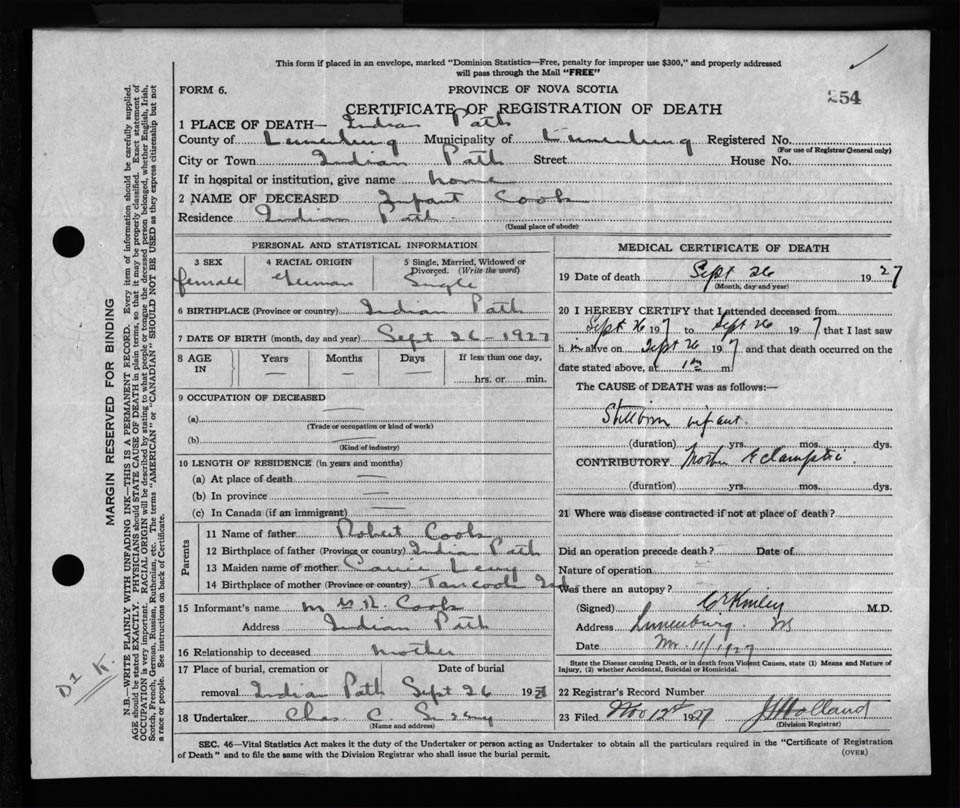 This form if placed in an envelope, marked "Dominion Statistics—Free, penalty for improper use $300," and properly addressed
will pass through the Mail "FREE"
FORM 6.
PROVINCE OF NOVA SCOTIA
254
CERTIFICATE OF REGISTRATION OF DEATH
1 PLACE OF DEATH— Indian Path
County of Lunenburg Municipality of Lunenburg Registered No.
(For use of Registrar General only)
City or Town Indian Path Street House No.
If in hospital or institution, give name home
2 NAME OF DECEASED Infant Cook
Residence Indian Path
(Usual place of abode)
PERSONAL AND STATISTICAL INFORMATION
3 SEX 4 RACIAL ORIGIN 5 Single, Married, Widowed or
Divorced. (Write the word)
female German Single
6 BIRTHPLACE (Province or country) Indian Path
7 DATE OF BIRTH (month, day and year) Sept 26 - 1927
8 AGE IN Years Months Days If less than one day,
— — — hrs. or min.
9 OCCUPATION OF DECEASED
(a)
(Trade or occupation or kind of work)
(b)
(Kind of industry)
10 LENGTH OF RESIDENCE (in years and months)
(a) At place of death
(b) In province
(c) In Canada (if an immigrant)
Parents
11 Name of father Robert Cook
12 Birthplace of father (Province or country) Indian Path
13 Maiden name of mother Carrie Levy
14 Birthplace of mother (Province or country) Tancook Isd
15 Informant's name M R. Cook
Address Indian Path
16 Relationship to deceased Mother
17 Place of burial, cremation or Date of burial
removal Indian Path Sept 26 1927
18 Undertaker Chas. C.
(Name and address)
MEDICAL CERTIFICATE OF DEATH
19 Date of death Sept 26 1927
(Month, day and year)
20 I HEREBY CERTIFY that I attended deceased from
Sept 26 1927 to Sept 26 1927 that I last saw
him alive on Sept 26 1927 and that death occurred on the
date stated above, at 1 m
The CAUSE of DEATH was as follows:—
Stillborn infant.
(duration) yrs. mos. dys.
CONTRIBUTORY Mother Eclamptic.
(duration) yrs. mos. dys.
21 Where was disease contracted if not at place of death?
Did an operation precede death? Date of
Nature of operation
Was there an autopsy?
(Signed) M.D.
Address Lunenburg. NS
Date Nov. 11/1927
State the Disease causing Death, or in death from Violent Causes, state (1) Means and Nature of
Injury, (2) whether Accidental, Suicidal or Homicidal.
22 Registrar's Record Number
23 Filed Nov 12th 1927 Holland
(Division Registrar)
SEC. 46—Vital Statistics Act makes it the duty of the Undertaker or person acting as Undertaker to obtain all the particulars required in the "Certificate of Registration
of Death" and to file the same with the Division Registrar who shall issue the burial permit.
(OVER)
MARGIN RESERVED FOR BINDING
N.B.—WRITE PLAINLY WITH UNFADING INK—THIS IS A PERMANENT RECORD. Every item of information should be carefully supplied.
AGE should be stated EXACTLY. PHYSICIANS should STATE CAUSE OF DEATH in plain terms, so that it may be properly classified. Exact statement of
OCCUPATION is very important. RACIAL ORIGIN will be described by stating to what people or tongue the deceased person belonged, whether English, Irish,
Scotch, French, German, Russian, Ruthenian, etc. The terms "AMERICAN" or "CANADIAN" SHOULD NOT BE USED as they express citizenship but not
a race or people. See instructions on back of Certificate.